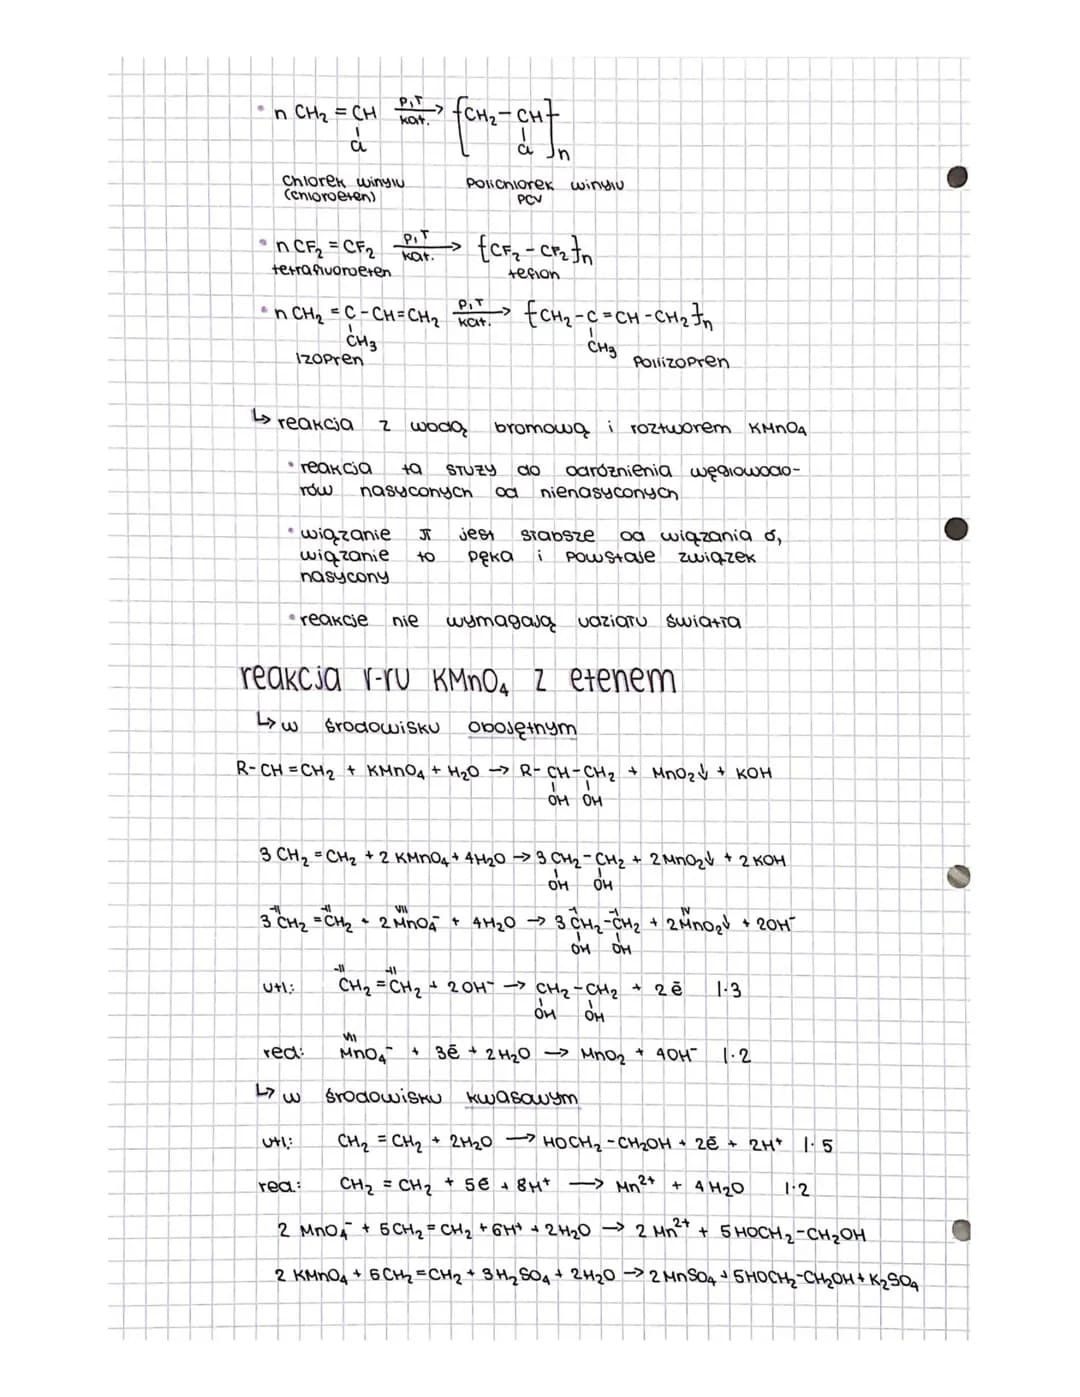 • n CH₂ = CH —p,T/kat.→ [CH₂ - CH]n
Cl Cl
chlorek winylu polichlorek winylu
(chloroeten) PCV
• n CF₂ = CF₂ —p,T/kat.→ [CF₂ - CF₂]n
tetrafluoroeten teflon
• n CH₂ = C - CH = CH₂ —p,T/kat.→ [CH₂ - C = CH - CH₂]n
CH₃ CH₃
izopren poliizopren
↳ reakcja z wodą bromową i roztworem KMnO₄
• reakcja ta służy do odróżnienia węglowodo-
rów nasyconych od nienasyconych
• wiązanie π jest słabsze od wiązania σ,
wiązanie to pęka i powstaje związek
nasycony
• reakcje nie wymagają udziału światła
reakcja r-ru KMnO₄ z etenem
↳ w środowisku obojętnym
R - CH = CH₂ + KMnO₄ + H₂O → R - CH - CH₂ + MnO₂↓ + KOH
OH OH
3 CH₂ = CH₂ + 2 KMnO₄ + 4H₂O → 3 CH₂ - CH₂ + 2MnO₂↓ + 2KOH
OH OH
-II -II VII -I -I IV
3 CH₂ = CH₂ + 2 MnO₄⁻ + 4H₂O → 3 CH₂ - CH₂ + 2MnO₂↓ + 2OH⁻
OH OH
-II -II
utl: CH₂ = CH₂ + 2OH⁻ → CH₂ - CH₂ + 2ē |·3
OH OH
VII
red: MnO₄⁻ + 3ē + 2H₂O → MnO₂ + 4OH⁻ |·2
↳ w środowisku kwasowym
utl: CH₂ = CH₂ + 2H₂O → HOCH₂ - CH₂OH + 2ē + 2H⁺ |·5
red: CH₂ = CH₂ + 5ē + 8H⁺ → Mn²⁺ + 4H₂O |·2
2 MnO₄⁻ + 5CH₂ = CH₂ + 6H⁺ + 2H₂O → 2 Mn²⁺ + 5HOCH₂ - CH₂OH
2 KMnO₄ + 5CH₂ = CH₂ + 3H₂SO₄ + 2H₂O → 2MnSO₄ + 5HOCH₂ - CH₂OH + K₂SO₄